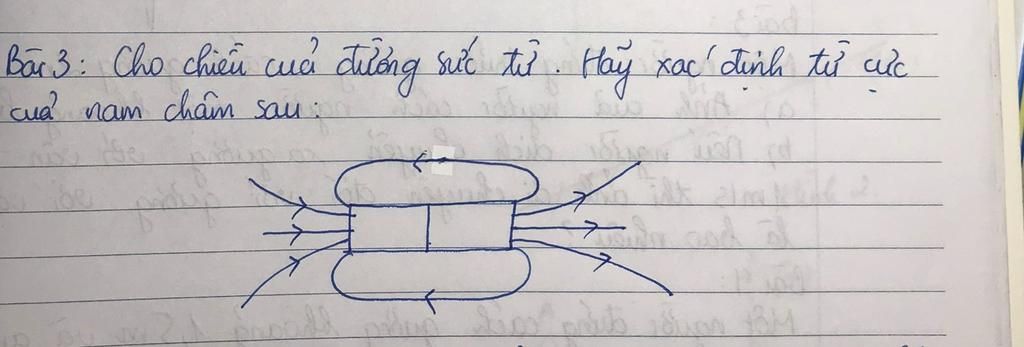 Bài 3: Cho chiều của đường sức từ. Hãy xác định từ cực
của nam châm sau: